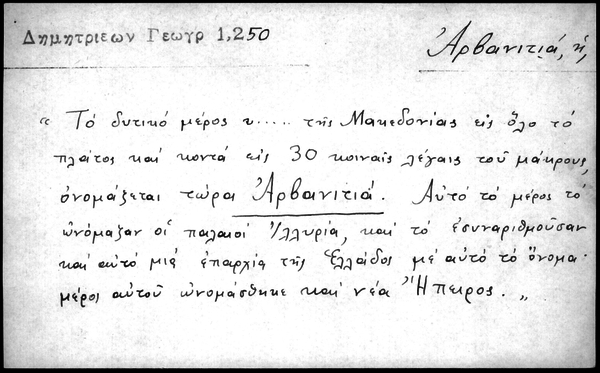 Δημητριεων Γεωγρ 1,250
Ἀρβανιτιά, ἡ,
« Τό δυτικό μέρος τ..... τῆς Μακεδονίας εἰς ὅλο τό
πλάτος καί κοντά εἰς 30 κοιναῖς λέγαις τοῦ μάκρους,
ὀνομάζεται τώρα Ἀρβανιτιά. Αὐτό τό μέρος τό
ὠνόμαζαν οἱ παλαιοί Ἰλλυρία, καί τό ἐσυναριθμοῦσαν
καί αὐτό μιά ἐπαρχία τῆς Ἑλλάδος μέ αὐτό τό ὄνομα·
μέρος αὐτοῦ ὠνομάσθηκε καί νέα Ἤπειρος. „